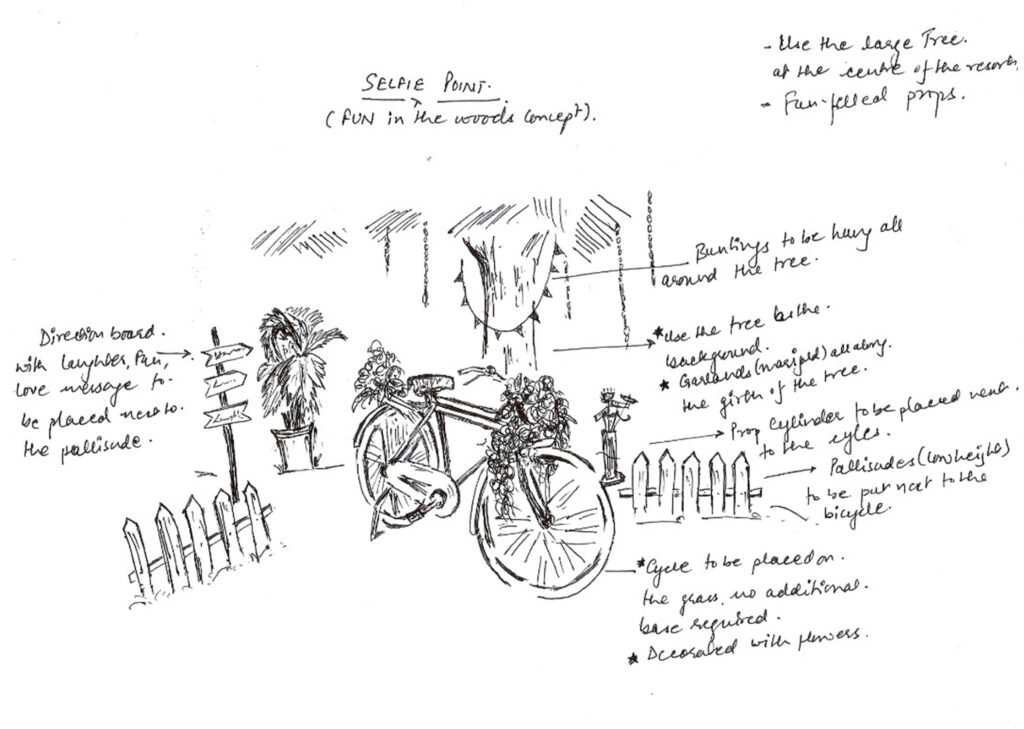 SELFIE POINT.
(FUN in the woods concept).
- Use the large Tree.
at the centre of the resort.
- Fun-filled props.
Buntings to be hung all
around the tree.
* Use the tree as the.
background.
* Garlands (marigold) all along.
the girth of the tree.
Prop cylinder to be placed next
to the cycles.
Pallisades (low height)
to be put next to the
bicycle.
* Cycle to be placed on.
the grass. no additional.
base required.
* Decorated with flowers.
Direction board.
with laughter, fun,
love message to.
be placed next to.
the pallisade.